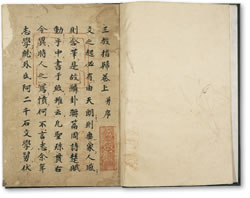 三教指歸卷上 并序
文之起必有由天朗則垂象人感
則含筆是故鱗卦聃篇周詩楚賦
動乎中書于紙雖云凡聖殊貫古
今異時人之寫憤何不言志余年
志學就外氏阿二千石文學舅伏